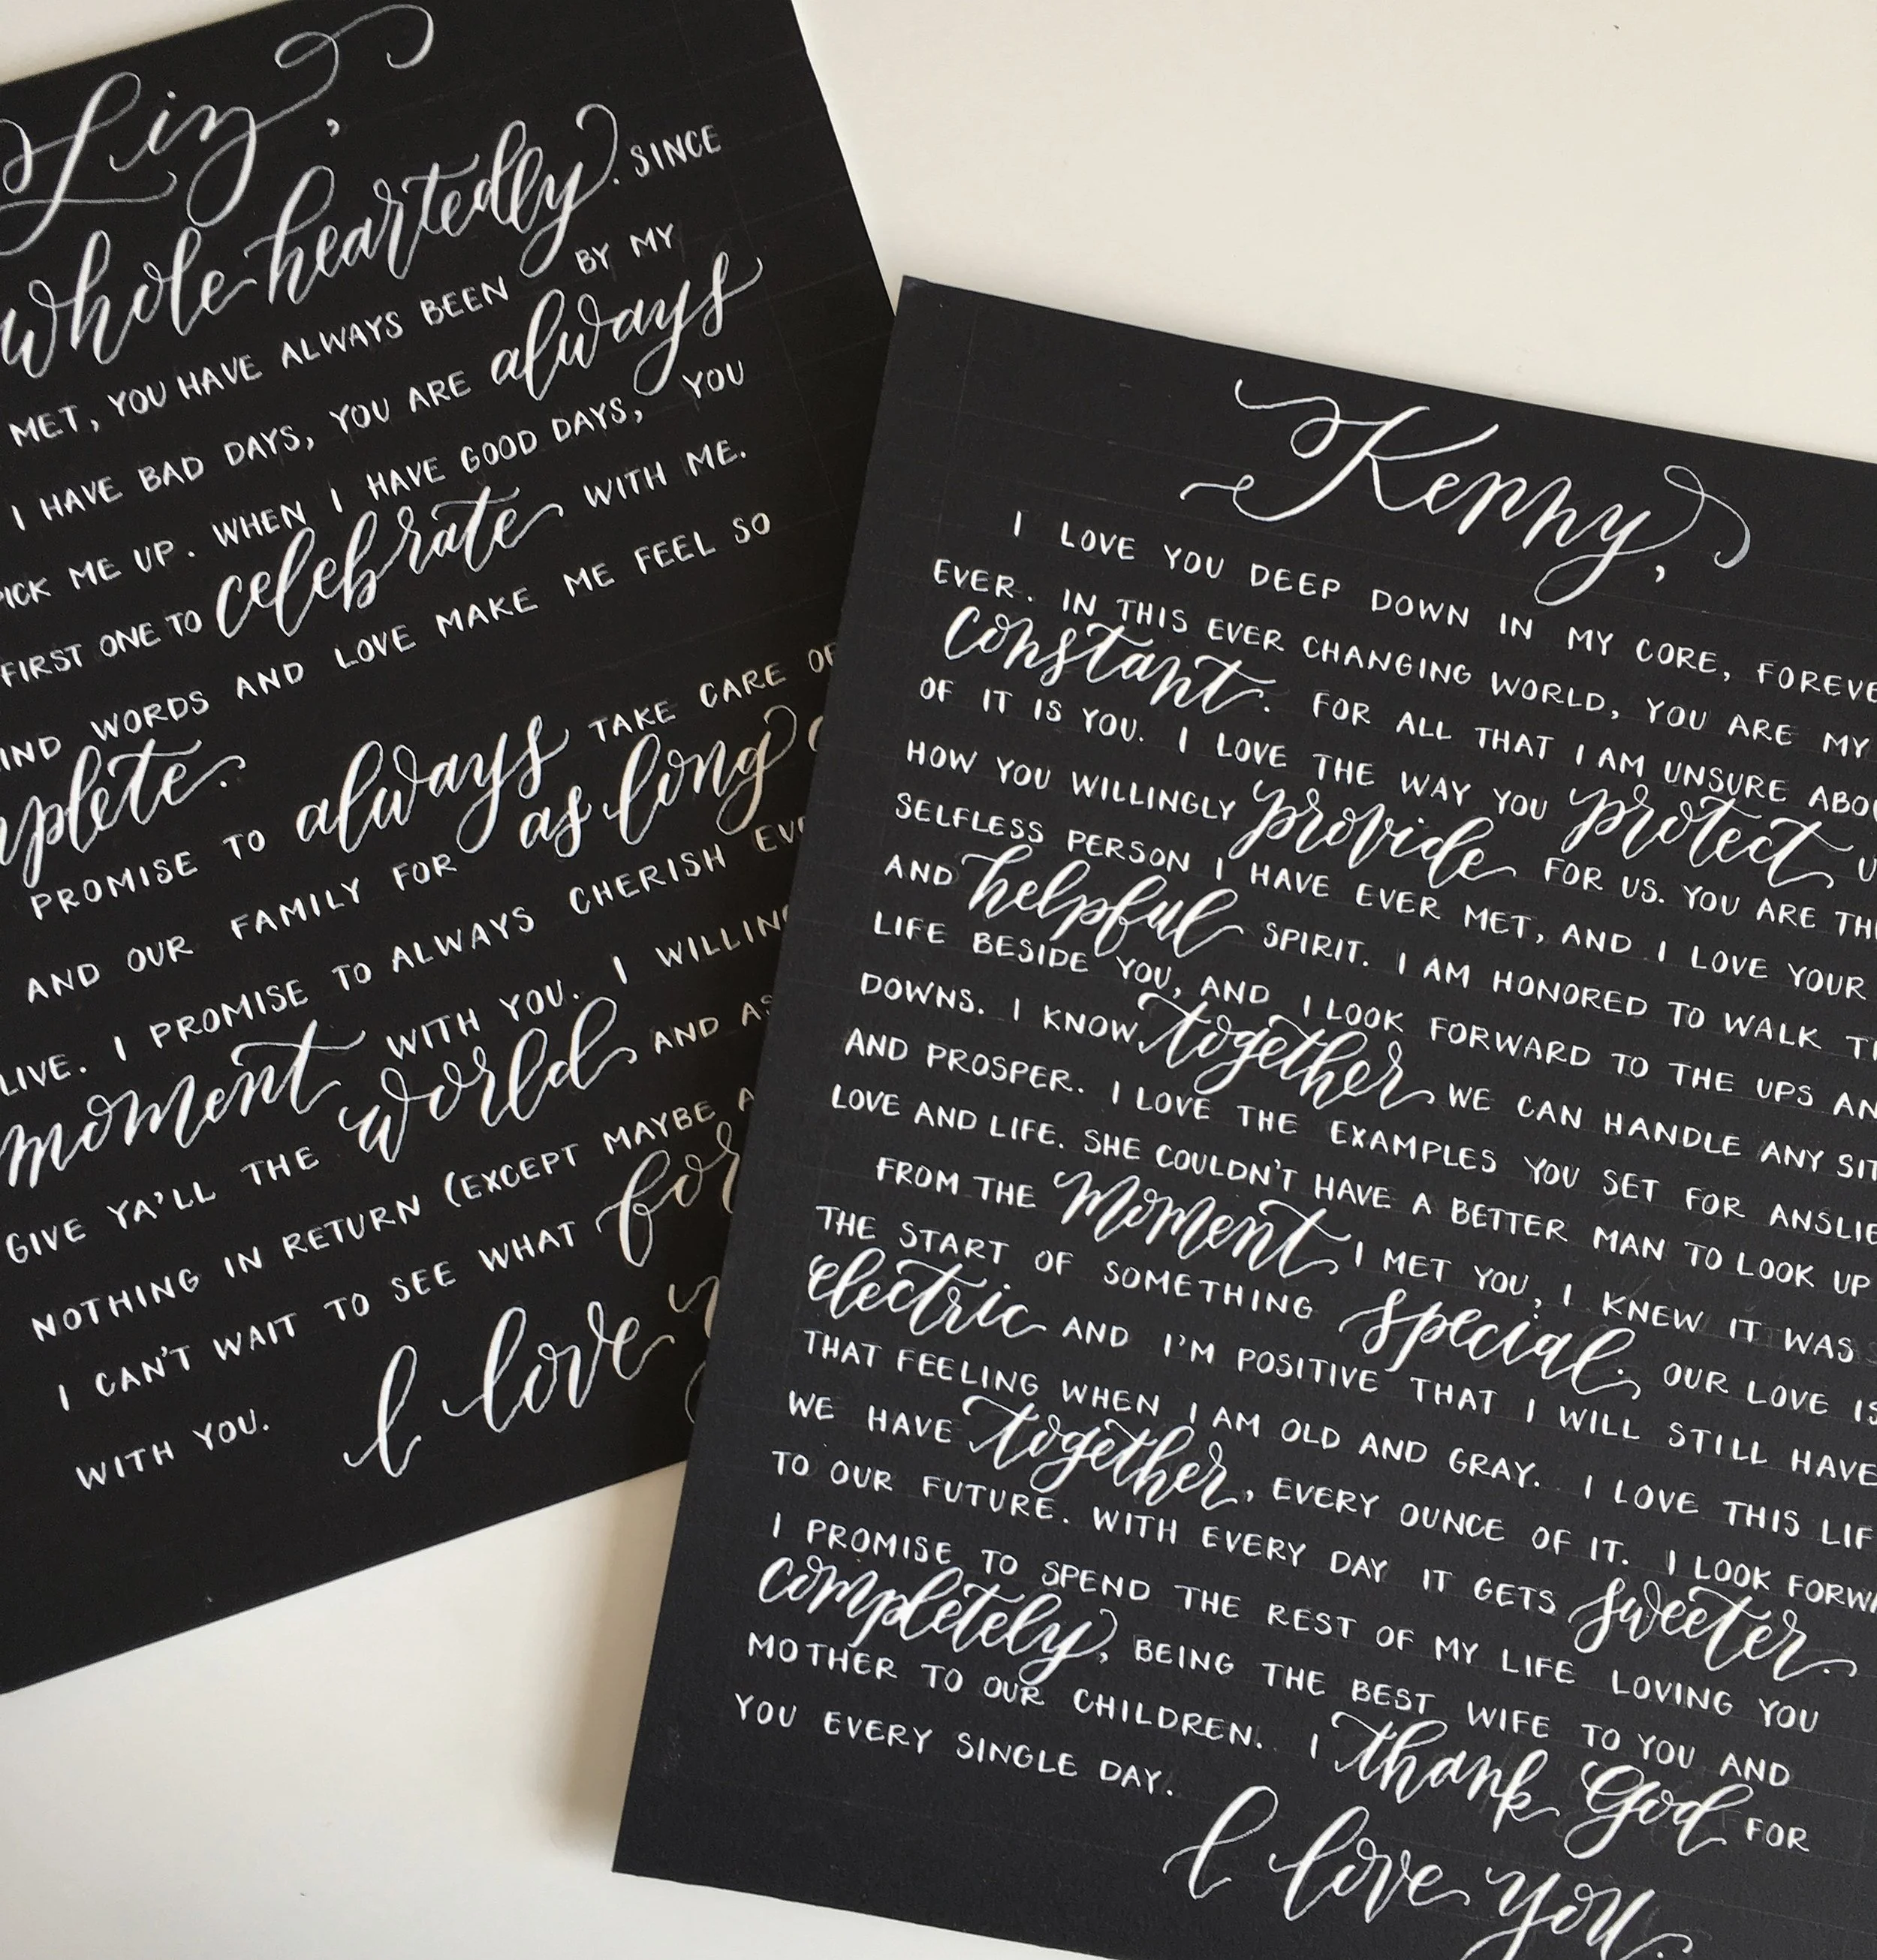 Liz,
whole-heartedly. SINCE
MET, YOU HAVE ALWAYS BEEN BY MY
I HAVE BAD DAYS, YOU ARE always
PICK ME UP. WHEN I HAVE GOOD DAYS, YOU
FIRST ONE TO celebrate WITH ME.
IND WORDS AND LOVE MAKE ME FEEL SO
mplete.
PROMISE TO always TAKE CARE OF
AND OUR FAMILY FOR as long
LIVE. I PROMISE TO ALWAYS CHERISH EVE
moment WITH YOU. I WILLING
GIVE YA'LL THE world, AND AS
NOTHING IN RETURN (EXCEPT MAYBE A
I CAN'T WAIT TO SEE WHAT for
WITH YOU.
I love y
Kenny,
I LOVE YOU DEEP DOWN IN MY CORE, FOREVE
EVER. IN THIS EVER CHANGING WORLD, YOU ARE MY
constant. FOR ALL THAT I AM UNSURE ABOU
OF IT IS YOU. I LOVE THE WAY YOU protect U
HOW YOU WILLINGLY provide FOR US. YOU ARE THE
SELFLESS PERSON I HAVE EVER MET, AND I LOVE YOUR
AND helpful SPIRIT. I AM HONORED TO WALK T
LIFE BESIDE YOU, AND I LOOK FORWARD TO THE UPS AN
DOWNS. I KNOW, together, WE CAN HANDLE ANY SIT
AND PROSPER. I LOVE THE EXAMPLES YOU SET FOR ANSLIE
LOVE AND LIFE. SHE COULDN'T HAVE A BETTER MAN TO LOOK UP
FROM THE moment I MET YOU, I KNEW IT WAS
THE START OF SOMETHING special. OUR LOVE IS
electric AND I'M POSITIVE THAT I WILL STILL HAVE
THAT FEELING WHEN I AM OLD AND GRAY. I LOVE THIS LIF
WE HAVE together, EVERY OUNCE OF IT. I LOOK FORWA
TO OUR FUTURE. WITH EVERY DAY IT GETS sweeter.
I PROMISE TO SPEND THE REST OF MY LIFE LOVING YOU
completely, BEING THE BEST WIFE TO YOU AND
MOTHER TO OUR CHILDREN. I thank God FOR
YOU EVERY SINGLE DAY.
I love you.